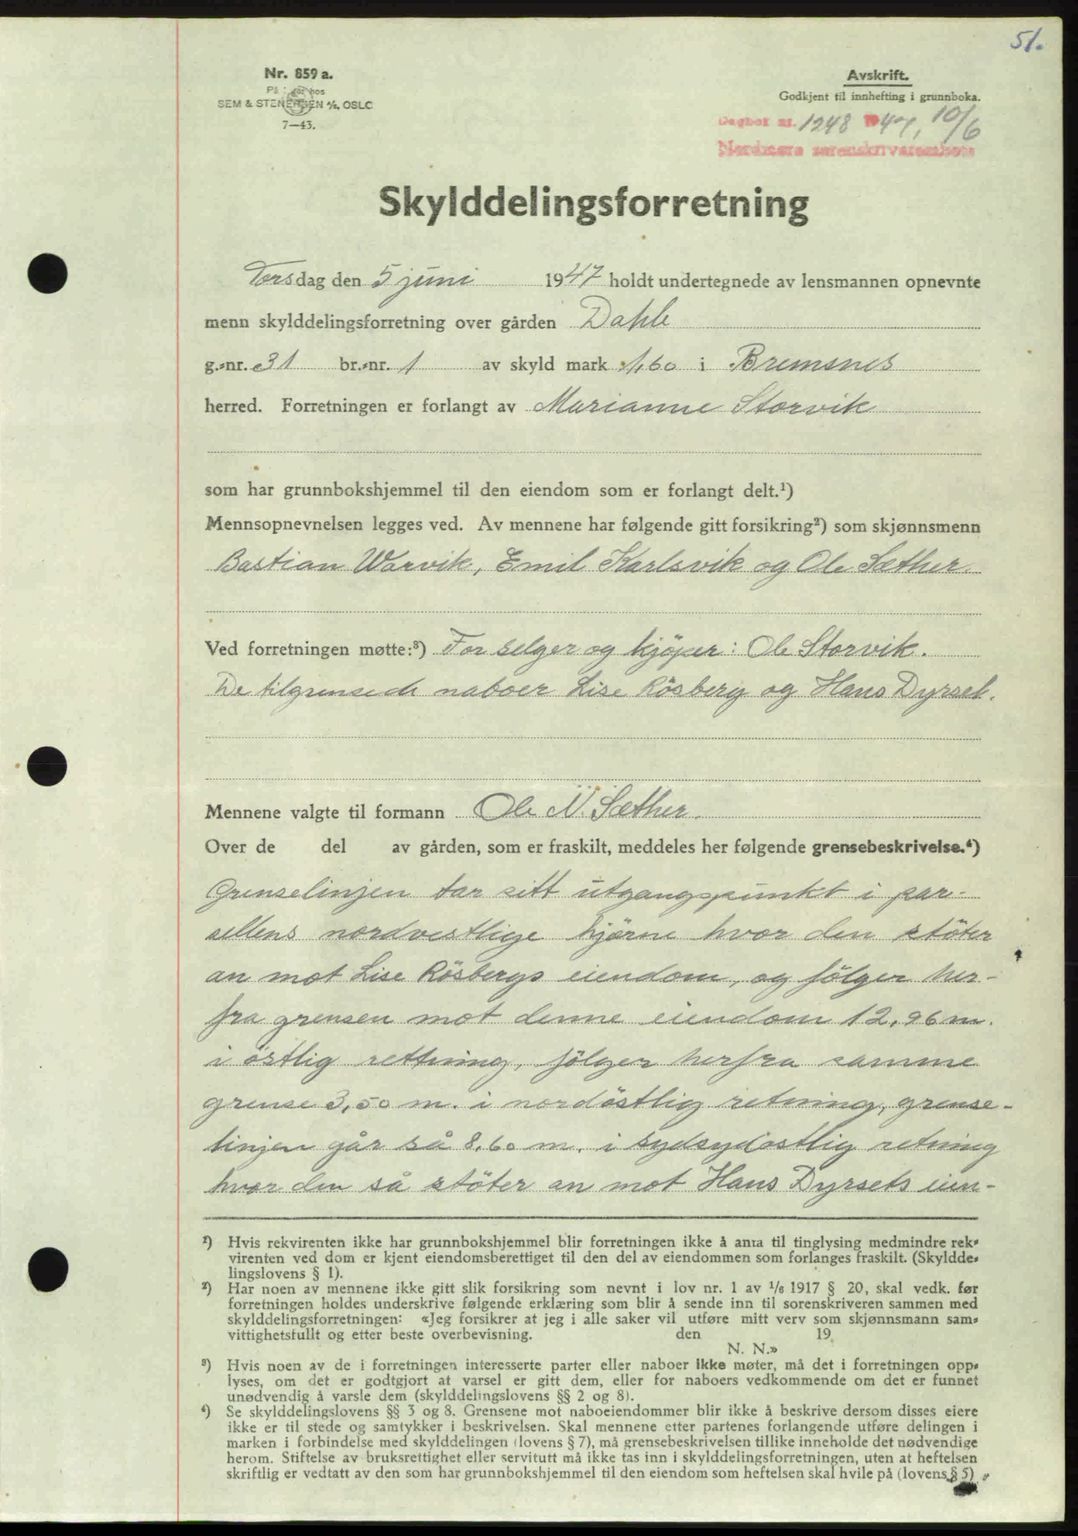 51.
Nr. 859 a.
SEM & STENERSEN A/S, OSLO
7—43.
Avskrift.
Godkjent til innhefting i grunnboka.
Dagbok nr. 1248 1947, 10/6
Nordmøre sorenskriverembete
Skylddelingsforretning
Torsdag den 5 juni 1947 holdt undertegnede av lensmannen opnevnte
menn skylddelingsforretning over gården Dahle
g.-nr. 31 br.-nr. 1 av skyld mark 1,60 i Bremsnes
herred. Forretningen er forlangt av Marianne Storvik
som har grunnbokshjemmel til den eiendom som er forlangt delt.¹)
Mennsopnevnelsen legges ved. Av mennene har følgende gitt forsikring²) som skjønnsmenn
Bastian Warvik, Emil Karlsvik og Ole Sæther.
Ved forretningen møtte:³) For selger og kjöper: Ole Storvik.
De tilgrensede naboer Lise Rösberg og Hans Dyrset.
Mennene valgte til formann Ole N. Sæther.
Over de del av gården, som er fraskilt, meddeles her følgende grensebeskrivelse.⁴)
Grenselinjen tar sitt utgangspunkt i par-
sellens nordvestlige hjörne hvor den stöter
an mot Lise Rösbergs eiendom, og fölger her-
fra grensen mot denne eiendom 12,96 m.
i östlig rettning, fölger herfra samme
grense 3,50 m. i nordöstlig retning, grense-
linjen går så 8,60 m. i sydsydostlig retning
hvor den så stöter an mot Hans Dyrsets eien-
¹) Hvis rekvirenten ikke har grunnbokshjemmel blir forretningen ikke å anta til tinglysing medmindre rek-
virenten ved dom er kjent eiendomsberettiget til den del av eiendommen som forlanges fraskilt. (Skyldde-
lingslovens § 1).
²) Har noen av mennene ikke gitt slik forsikring som nevnt i lov nr. 1 av 1/6 1917 § 20, skal vedk. før
forretningen holdes underskrive følgende erklæring som blir å sende inn til sorenskriveren sammen med
skylddelingsforretningen: «Jeg forsikrer at jeg i alle saker vil utføre mitt verv som skjønnsmann sam-
vittighetsfullt og etter beste overbevisning. den 19
N. N.»
³) Hvis noen av de i forretningen interesserte parter eller naboer ikke møter, må det i forretningen opp-
lyses, om det er godtgjort at varsel er gitt dem, eller for naboers vedkommende om det er funnet
unødvendig å varsle dem (skylddelingslovens §§ 2 og 8).
⁴) Se skylddelingslovens §§ 3 og 8. Grensene mot naboeiendommer blir ikke å beskrive dersom disses eiere
ikke er til stede og samtykker i beskrivelsen. Skal mennene etter partenes forlangende utføre delingen i
marken i forbindelse med skylddelingen (lovens § 7), må grensebeskrivelsen tillike inneholde det nødvendige
herom. Stiftelse av bruksrettighet eller servitutt må ikke tas inn i skylddelingsforretningen, uten at heftelsen
skriftlig er vedtatt av den som har grunnbokshjemmel til den eiendom som heftelsen skal hvile på (lovens § 5)